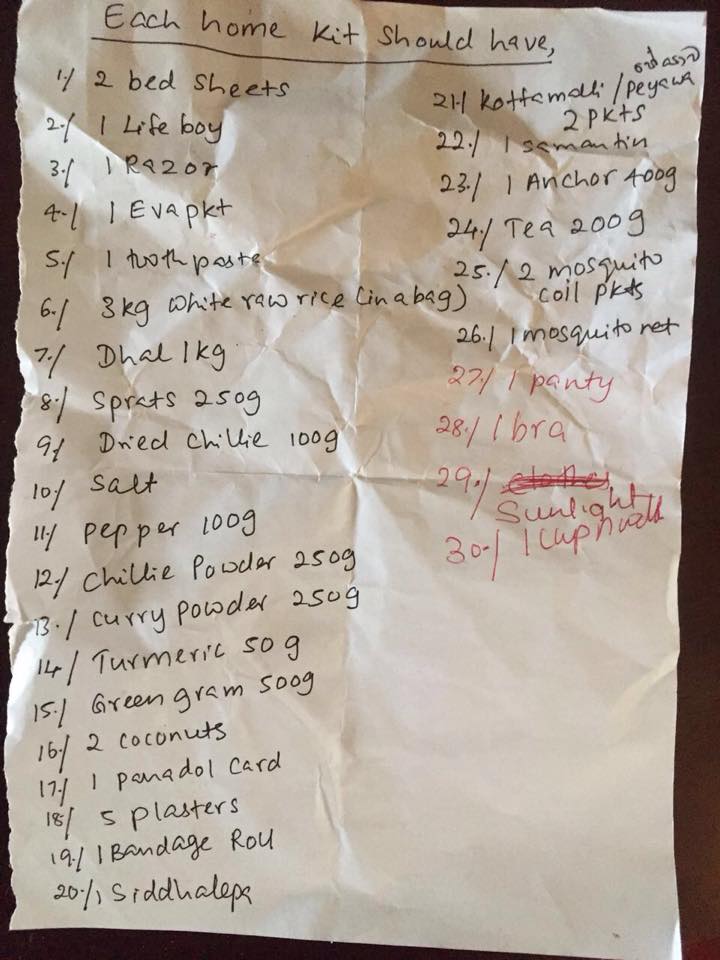 Each home kit should have,
1./ 2 bed sheets
2./ 1 Life boy
3./ 1 Razor
4./ 1 Eva pkt
5./ 1 tooth paste
6./ 3kg white raw rice (in a bag)
7./ Dhal 1kg
8./ Sprats 250g
9./ Dried Chillie 100g
10./ Salt
11./ Pepper 100g
12./ Chillie Powder 250g
13./ curry powder 250g
14./ Turmeric 50 g
15./ Green gram 500g
16./ 2 coconuts
17./ 1 panadol Card
18./ 5 plasters
19./ 1 Bandage Roll
20./ 1 Siddhalepa
21./ Kottamalli / Peyawa
2 pkts
22./ 1 samantin
23./ 1 Anchor 400g
24./ Tea 200g
25./ 2 mosquito
coil pkts
26./ 1 mosquito net
27./ 1 panty
28./ 1 bra
29./
Sunlight
30./ 1 Cup